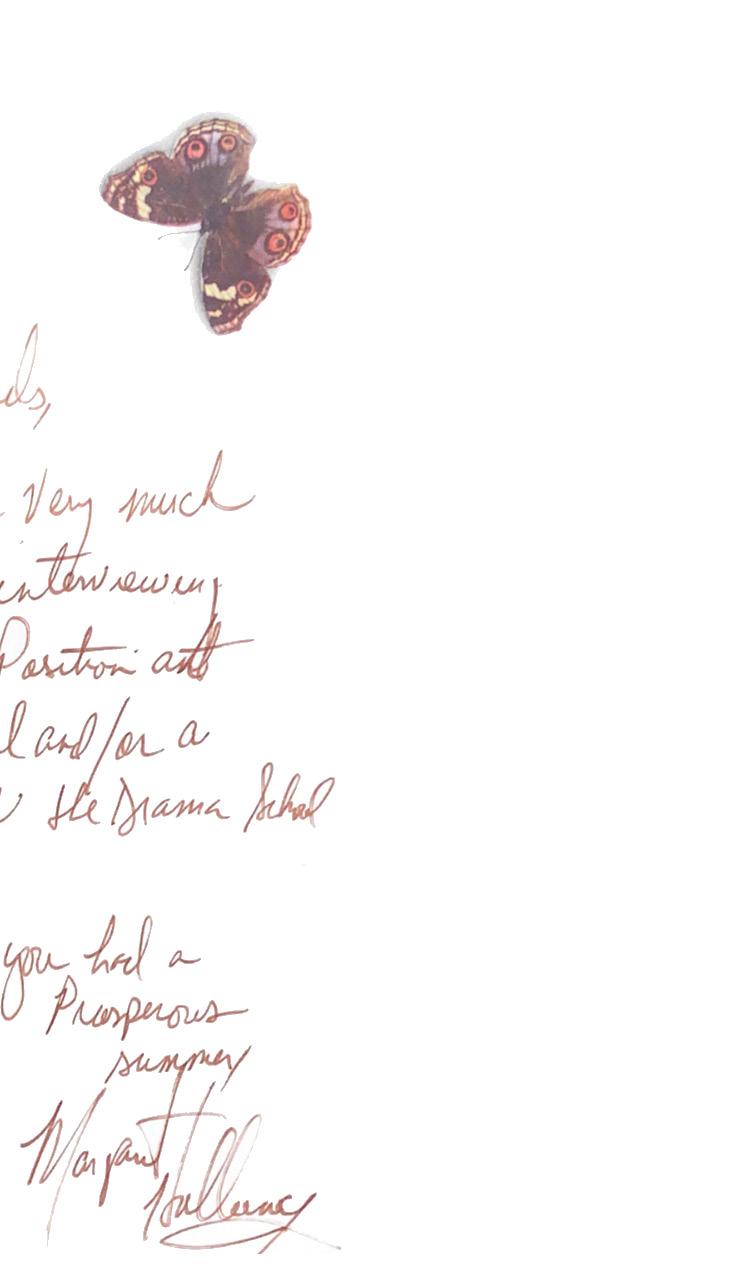 ds,
Very much
interviewing
Position and
l and/or a
the Drama School
you had a
Prosperous
summer
Margaret